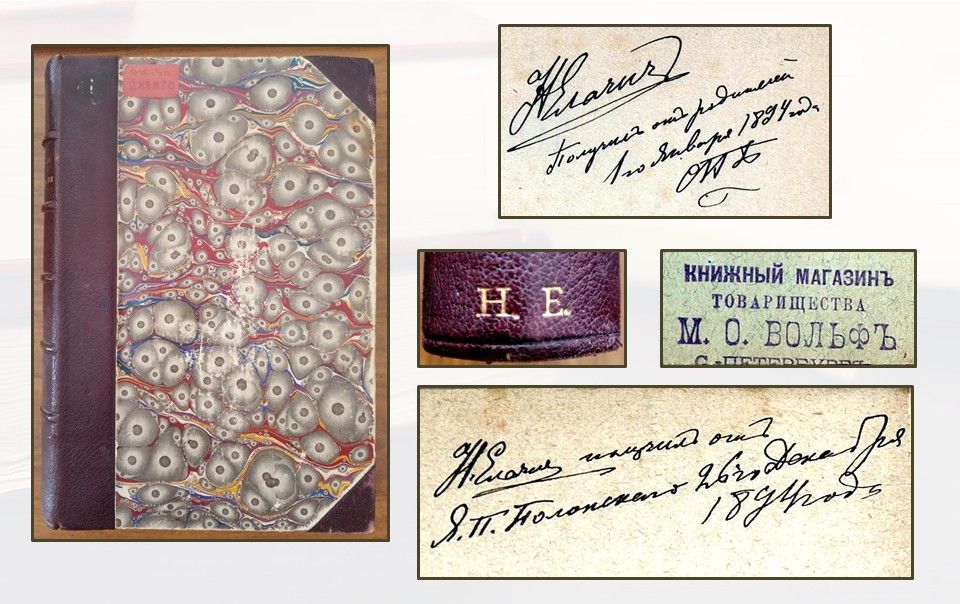 916-53
288870
НЕлачичъ
Получилъ отъ родителей
1го Января 1894 года
Н. Е.
КНИЖНЫЙ МАГАЗИНЪ
ТОВАРИЩЕСТВА
М. О. ВОЛЬФЪ
С.-ПЕТЕРБУРГЪ
Н. Елачич получилъ отъ
Я. П. Полонскаго 26го Декабря
1894 года